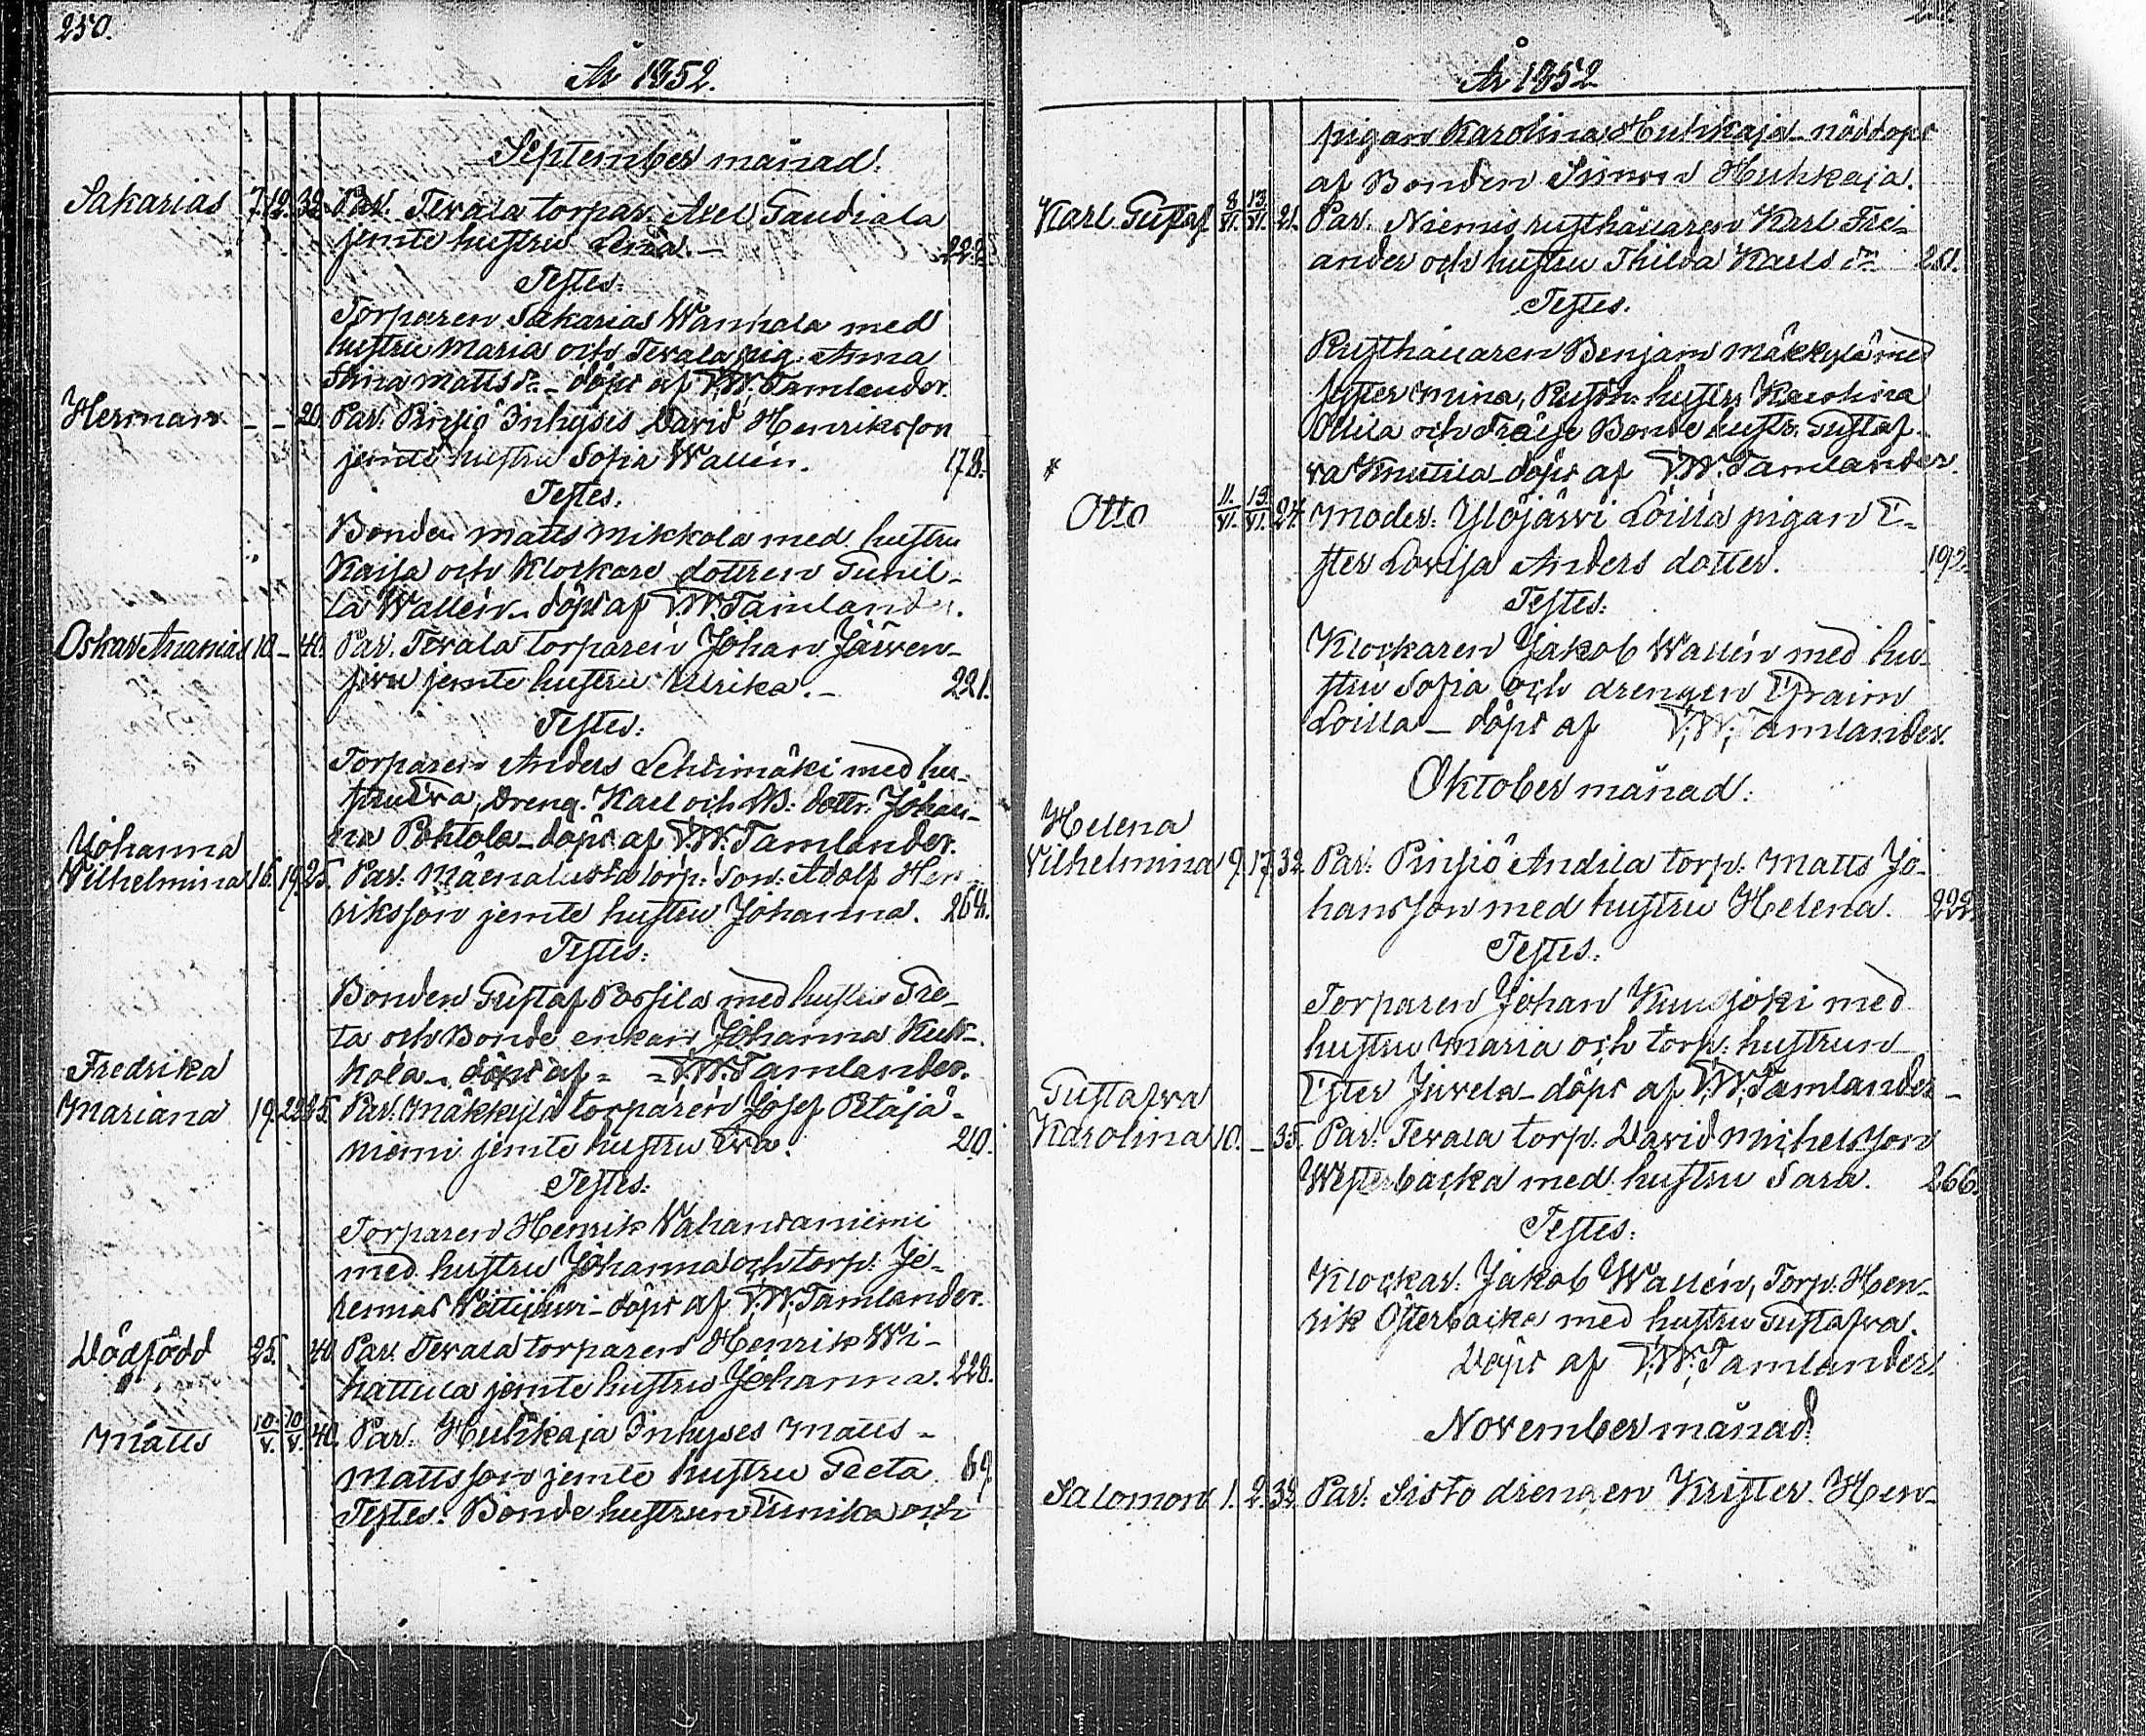 250.
År 1852.
September månad.
Sakarias 7. 12. 32. Par. Tevala torpar. Axel Gaudiala
jemte hustru Lena. – 222.
Testes:
Torparen Sakarias Wanhala med
hustru Maria och Tevala pig. Anna
Stina Matts dr. – döpt af V.W. Tamlander.
Herman – – 20. Par. Pinsiö Inhysis David Henriksson
jemte hustru Sofia Wallén. 178.
Testes.
Bonden Matts Mikkola med hustru
Kaisa och Klockare dottren Gunil-
la Wallén – döpt af V.W. Tamlander.
Oskar Ananias 10. – 40. Par. Tevala torparen Johan Järven-
sivu jemte hustru Ulrika. – 221.
Testes:
Torparen Anders Lehtimäki med hu-
stru Eva, Dreng. Karl och B: dottr. Johan-
na Pohtola – döpt af V.W. Tamlander.
Johanna
Vilhelmina 16. 19. 25. Par: Mäenalusta torp: son: Adolf Hen-
riksson jemte hustru Johanna. 264.
Testes:
Bonden Gustaf Passila med hustru Gre-
ta och Bonde enkan Johanna Kuk-
kola – döpt af – – V.W. Tamlander.
Fredrika
Mariana 19. 22. 35. Par. Mäkkylä torparen Josef Petäjä-
niemi jemte hustru Eva. 210.
Testes:
Torparen Henrik Wahantaniemi
med hustru Johanna och torp: Je-
remias – döpt af V.W. Tamlander.
Dödfödd 25. 40. Par. Tevala torparen Henrik Wi-
hattula jemte hustru Johanna. 228.
Matts 10/V. 10/V. 40. Par. Huhkaja Inhyses Matts –
Mattsson jemte hustru Greta 69.
Testes: Bonde hustrun Eunika och
År 1852
pigan Karolina Huhkaja – nöddöpt
af Bonden Simon Huhkaja.
Karl Gustaf 8/VI. 13/VI. 21. Par. Niemis rusthållaren Karl Fre-
ander och hustru Thilda Karls dr. 201.
Testes.
Rusthållaren Benjam Mäkkylä med
syster Mina, Rusth. hustr. Karolina
Ollila och Frälse Bonde hustr. Gustaf-
va Knuutila – döpt af V.W. Tamlander.
*
Otto 11./VI. 13/VI. 24. Moder: Ylöjärvi Loilla pigan E-
ster Lovisa Anders dotter. 192.
Testes:
Klockaren Jakob Wallén med hu-
stru Sofia och drengen Efraim
Loilla – döpt af V.W. Tamlander.
Oktober månad.
Helena
Vilhelmina 9. 17. 32. Par: Pinsiö Andila torp: Matts Jo-
hansson med hustru Helena. 222.
Testes:
Torparen Johan Kuusjoki med
hustru Maria och torp: hustrun
Ester Juvela – döpt af V.W. Tamlander –
Gustafva
Karolina 10. – 35. Par: Tevala torp. David Michelsson
Westerbacka med hustru Sara. 266.
Testes:
Klockar: Jakob Wallén, Torp: Hen-
rik Österbacka med hustru Gustafva.
Döpt af V.W. Tamlander.
November månad.
Salomon 1. 2. 32. Par: Sisto drengen Krister Hen-